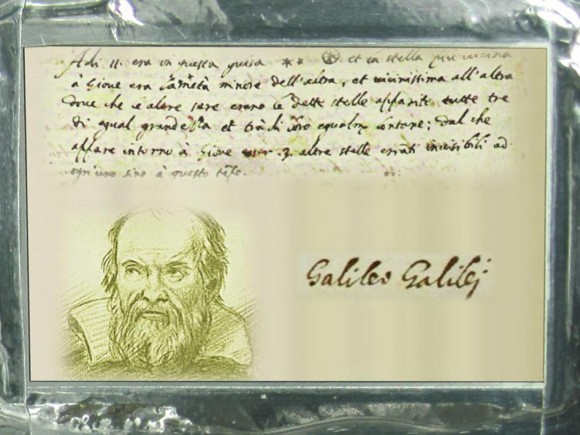 Adì 11. era in questa guisa ** et la stella più vicina
à Giove era la metà minore dell'altra, et vicinissima all'altra
dove che le altre sere erano le dette stelle apparite tutte tre
di equal grandezza et trà di loro equalm. lontane; dal che
appare intorno à Giove esser .3. altre stelle erranti invisibili ad
ogn'uno sino à questo tempo.
Galileo Galilej